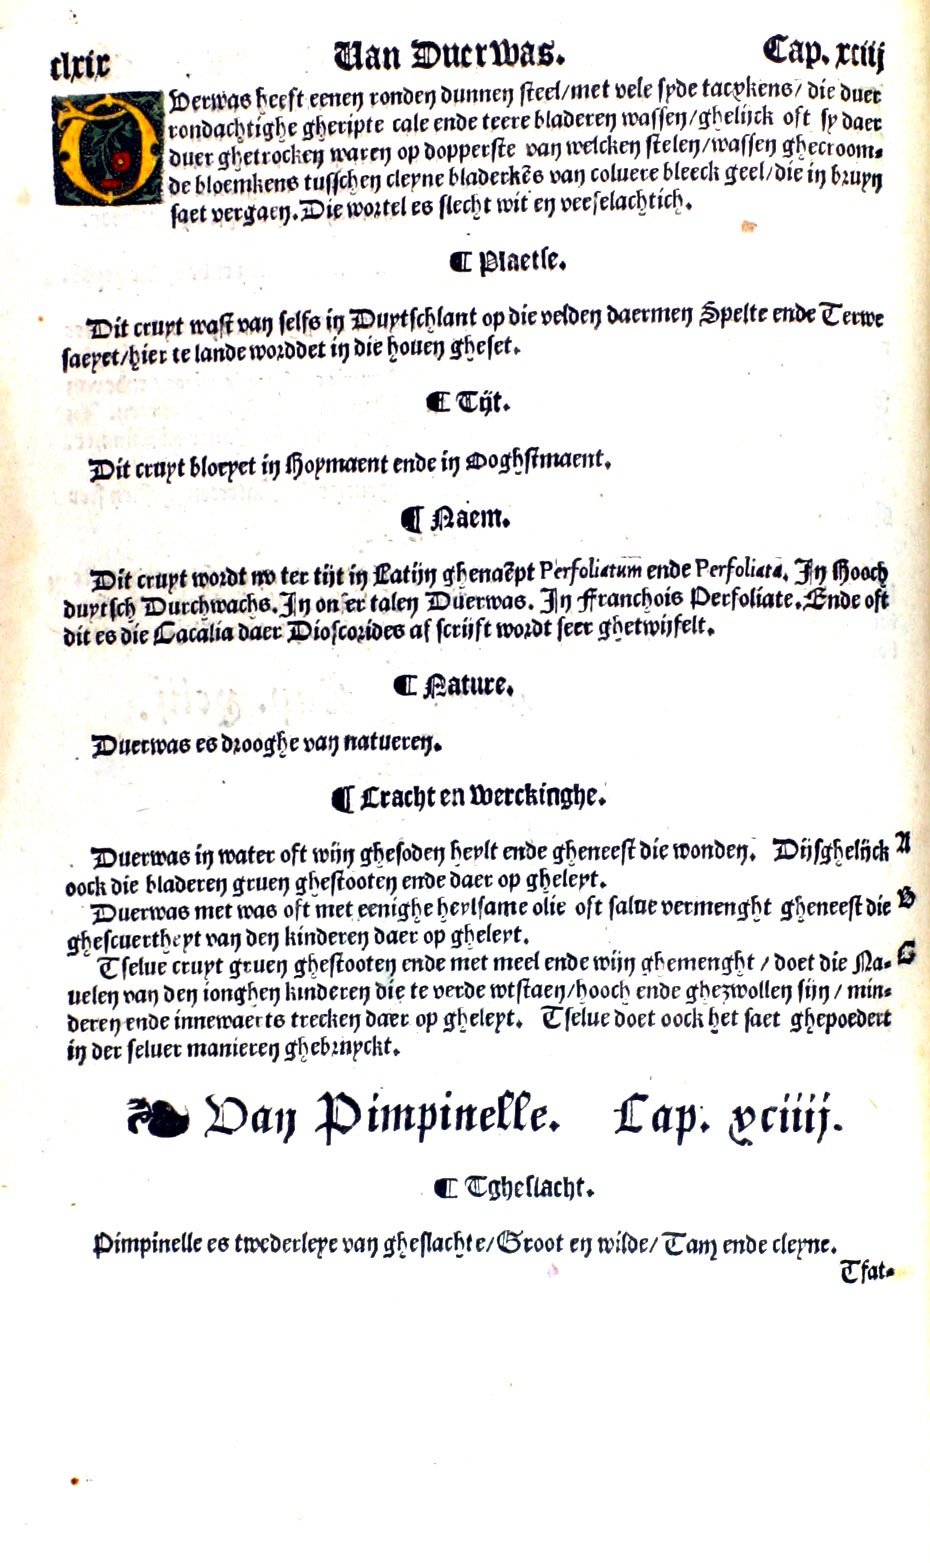 clxix Van Duerwas. Cap. xciij
Duerwas heeft eenen ronden dunnen steel/met vele syde tacxkens/ die duer
rondachtighe gheripte cale ende teere bladeren wassen/ghelijck oft sy daer
duer ghetrocken waren op dopperste van welcken stelen/wassen ghecroom-
de bloemkens tusschen cleyne bladerkēs van coluere bleeck geel/die in bruyn
saet vergaen. Die wortel es slecht wit en veeselachtich.
¶ Plaetse.
Dit cruyt wast van selfs in Duytschlant op die velden daermen Spelte ende Terwe
saeyet/hier te lande worddet in die houen gheset.
¶ Tijt.
Dit cruyt bloeyet in Hoymaent ende in Ooghstmaent.
¶ Naem.
Dit cruyt wordt nv ter tijt in Latijn ghenaēpt Perfoliatum ende Perfoliata. In Hooch
duytsch Durchwachs. In onser talen Duerwas. In Franchois Perfoliate. Ende oft
dit es die Cacalia daer Dioscorides af scrijft wordt seer ghetwijfelt.
¶ Nature.
Duerwas es drooghe van natueren.
¶ Cracht en Werckinghe.
Duerwas in water oft wijn ghesoden heylt ende gheneest die wonden. Dijsghelijck A
oock die bladeren gruen ghestooten ende daer op gheleyt.
Duerwas met was oft met eenighe heylsame olie oft salue vermenght gheneest die B
ghescuertheyt van den kinderen daer op gheleyt.
Tselue cruyt gruen ghestooten ende met meel ende wijn ghemenght / doet die Na- C
uelen van den ionghen kinderen die te verde wtstaen/hooch ende ghezwollen sijn / min-
deren ende innewaerts trecken daer op gheleyt. Tselue doet oock het saet ghepoedert
in der seluer manieren ghebruyckt.
Van Pimpinelle. Cap. xciiij.
¶ Tgheslacht.
Pimpinelle es twederleye van gheslachte/Groot en wilde/Tam ende cleyne.
Tfat-